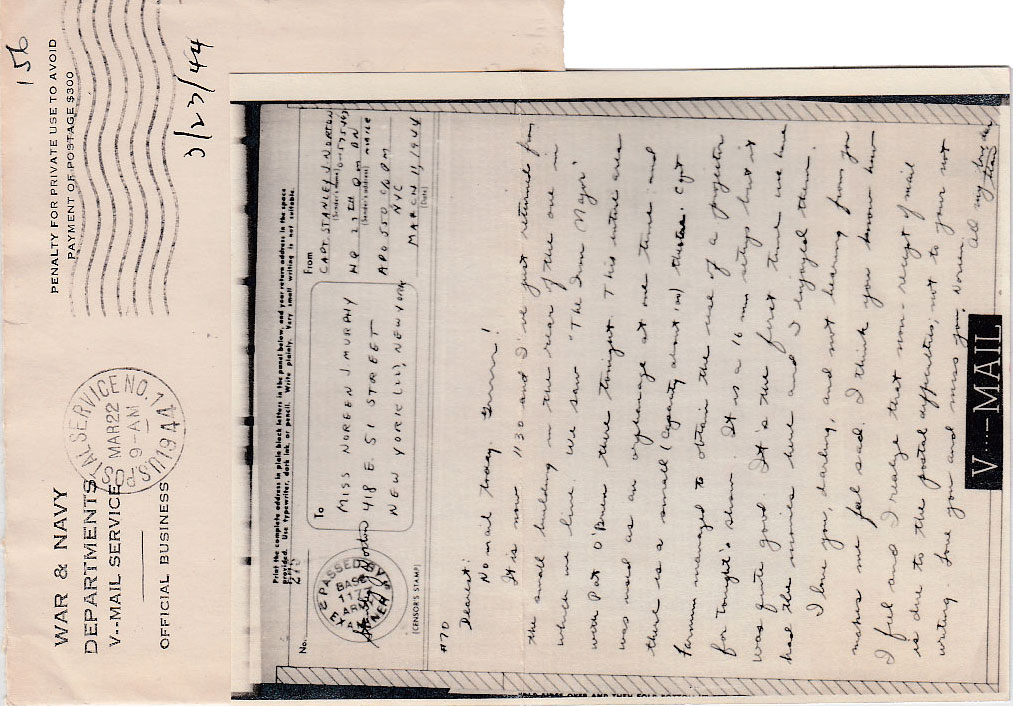 156
PENALTY FOR PRIVATE USE TO AVOID
PAYMENT OF POSTAGE $300
3/23/44
WAR & NAVY
DEPARTMENTS
V--MAIL SERVICE
OFFICIAL BUSINESS
U.S. POSTAL SERVICE NO. 1
MAR 22
9-AM
1944
Print the complete address in plain block letters in the panel below, and your return address in the space
provided. Use typewriter, dark ink, or pencil. Write plainly. Very small writing is not suitable.
No.
To
MISS NOREEN J MURPHY
418 E. 51 STREET
NEW YORK (22), NEW YORK
From
CAPT STANLEY J. NORTON
(Sender's name)
HQ 27th QM BN
(Sender's address)
APO 550 c/o PM
NYC
MARCH 11, 1944
(Date)
PASSED BY
BASE
ARMY
EXAMINER
(CENSOR'S STAMP)
#70
Dearest:
No mail today. Grrrr!
It is now 1130 and I've just returned from
the small building in the rear of the one in
which we live. We saw "The Iron Major"
with Pat O'Brien there tonight. This entire area
was used as an orphanage at one time and
there is a small (capacity about 100) theater. Capt
Farmm managed to obtain the use of a projector
for tonight's show. It was a 16 mm setup but it
was quite good. It's the first time we have
had the movies here and I enjoyed them.
I love you, darling, and not hearing from you
makes me feel sad. I think you know how
I feel and I realize that non-receipt of mail
is due to the postal difficulties, not to your not
writing. Love you and miss you, Noreen.
All my love dear
Stan
V···—MAIL
FOLD SIDES OVER AND THEN FOLD BOTTOM